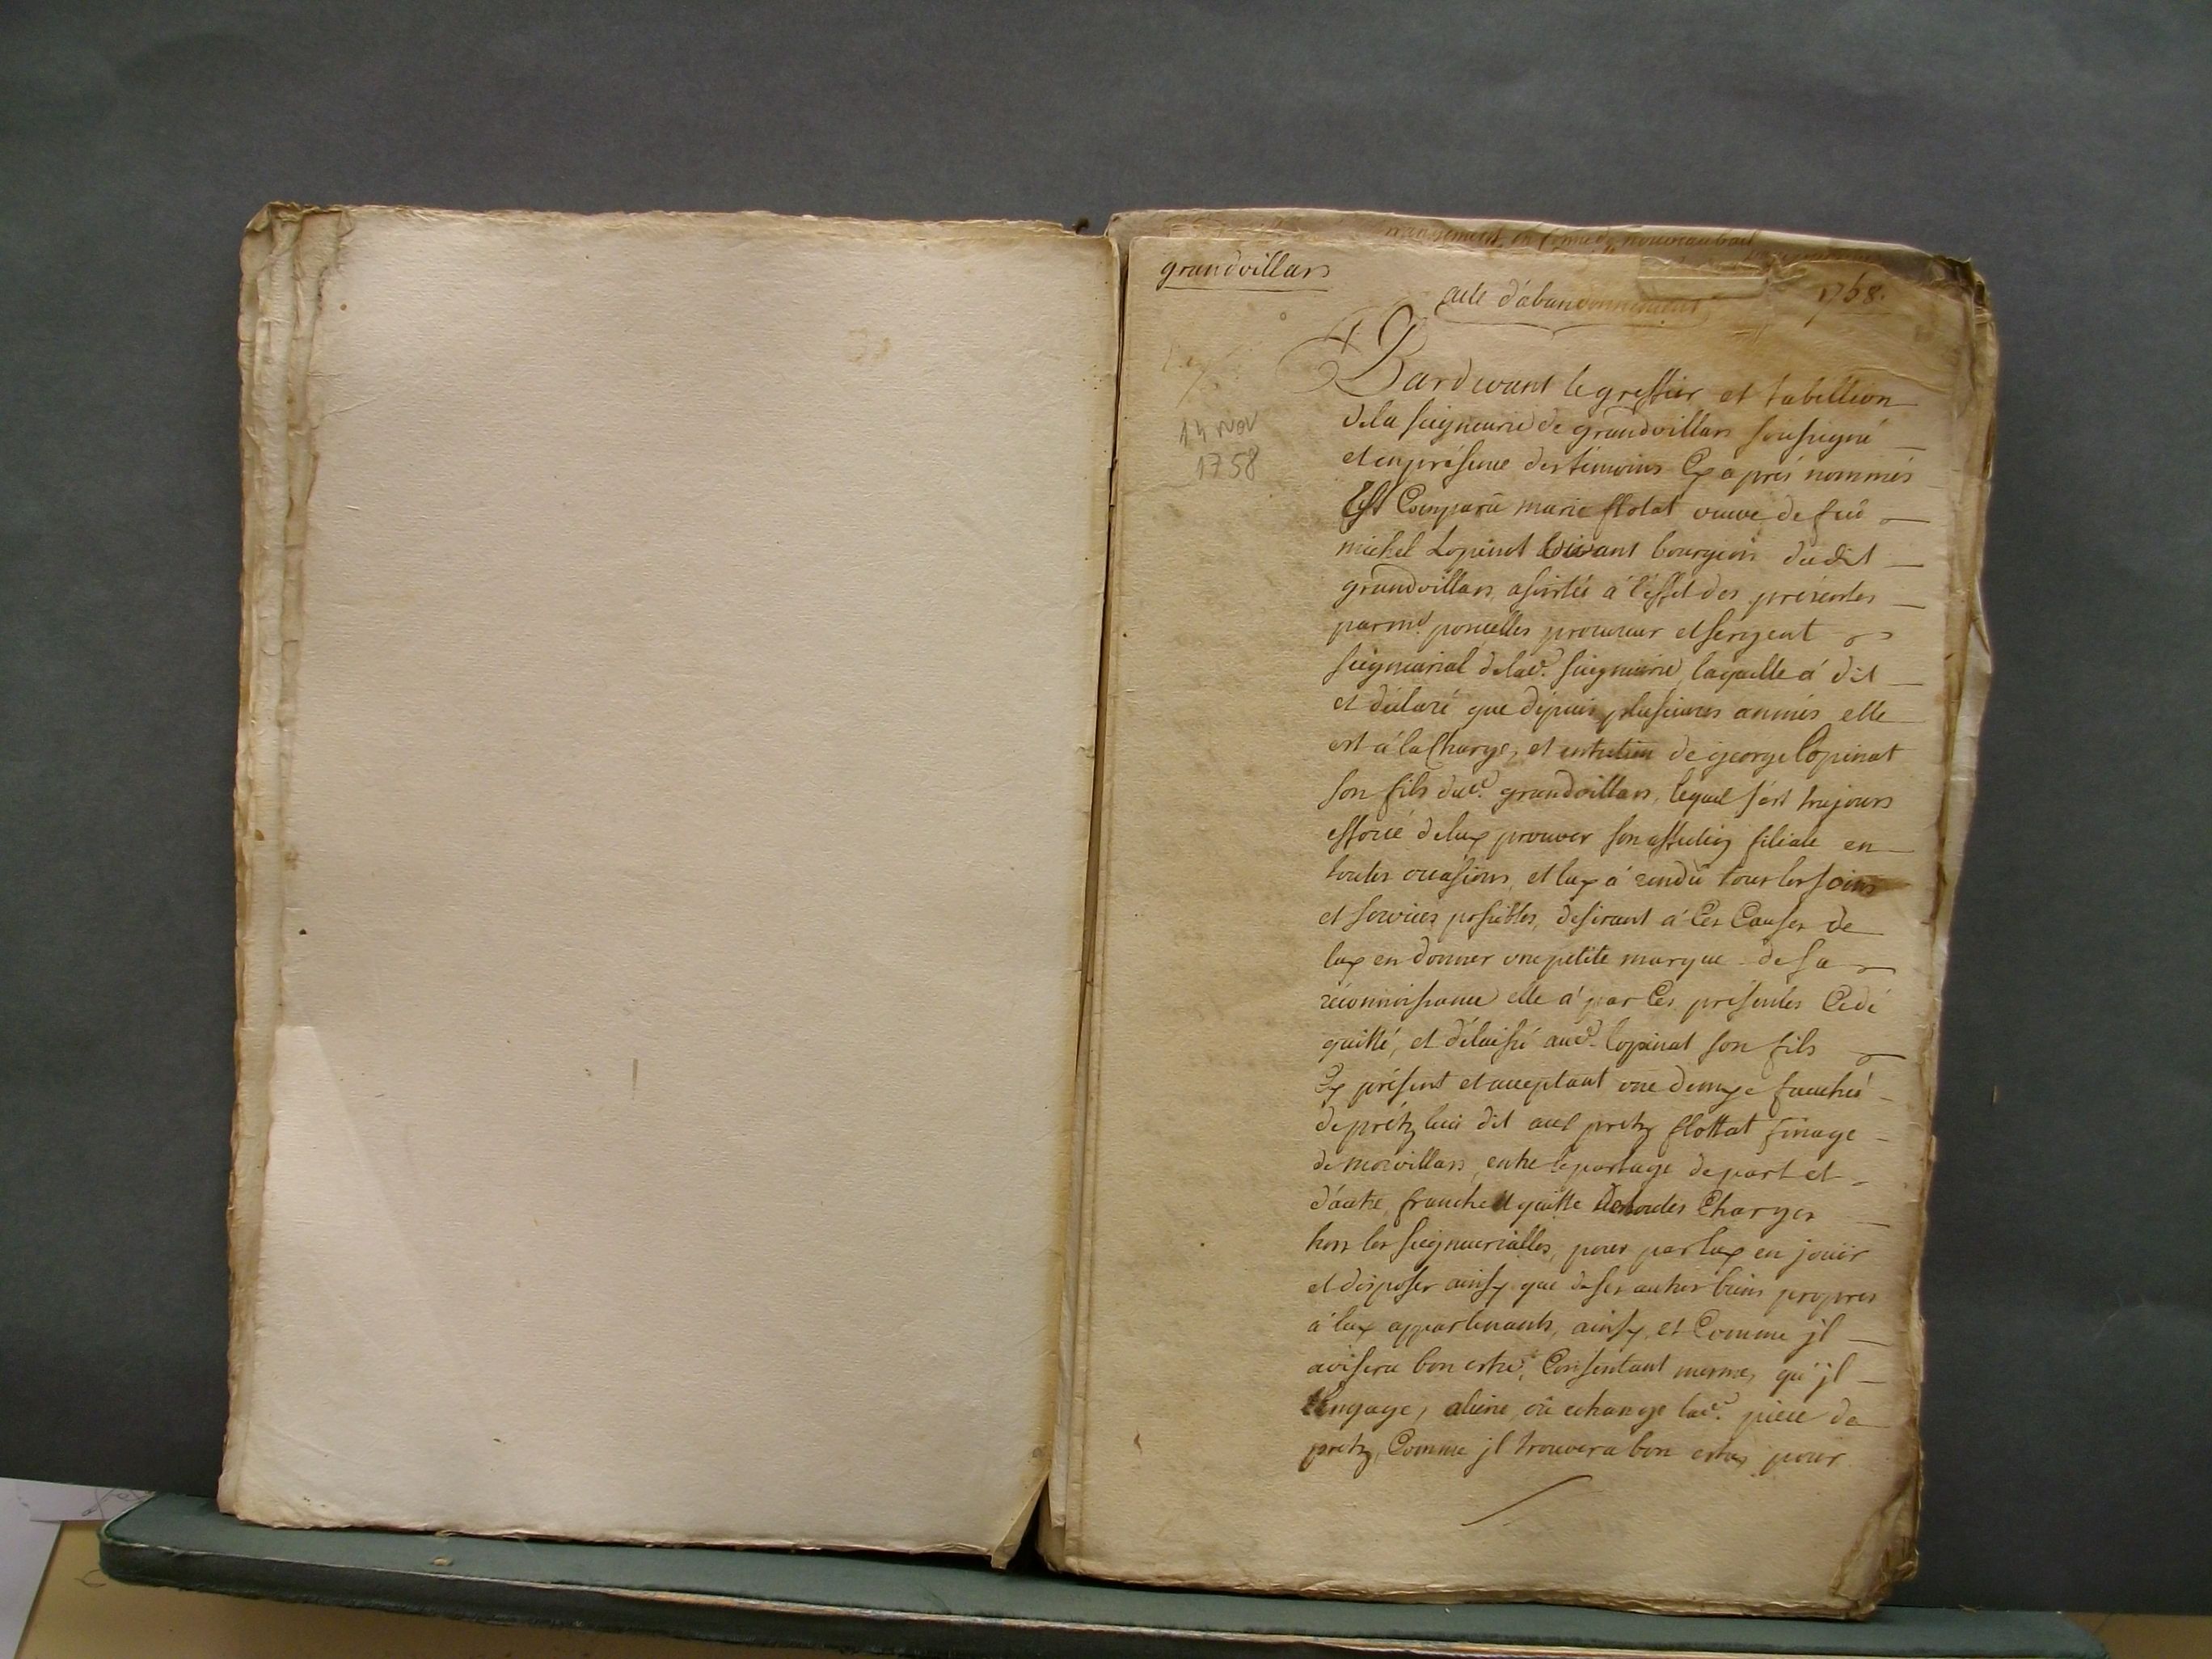 grandvillars
acte d'abandonnement 1758.
14 nov
1758
Pardevant le greffier et tabellion
dela seigneurie de grandvillars soussigné
et en présence des témoins Cy après nommés
Est Comparû marie flotat veuve de feû
michel Lopinot vivant bourgeois dudit
grandvillars, assistée à l'effet des présentes
par m.e porcelles procureur et sergent
seigneurial delad.e seigneurie, laquelle à dit
et déclaré que dépuis plusieures années elle
est à la Charge, et entretien de george lopinat
son fils dud.t grandvillars, lequel s'est toujours
efforcé deluy prouver son affection filiale en
toutes occasions, et luy à rendû tous les soins
et services possibles, désirant à Ces Causes de
luy en donner une petite marque de sa
réconnoissance elle à par Ces présentes Cédé
quitté, et délaissé aud.t lopinat son fils
Cy présent et acceptant une demye fauchée
de prétz lieu dit aux pretz flottat finage
de morvillars, entre le partage de part et
d'autre, franche et quitte de toutes Charges
hors les seigneurialles, pour par luy en jouir
et disposer ainsy que de ses autres biens propres
à luy appartenants, ainsy, et Comme jl
avisera bon estre, Consentant mesme, qu'jl
Engage, aliene, où echange lad.e piece de
pretz, Comme jl trouvera bon estre, pour